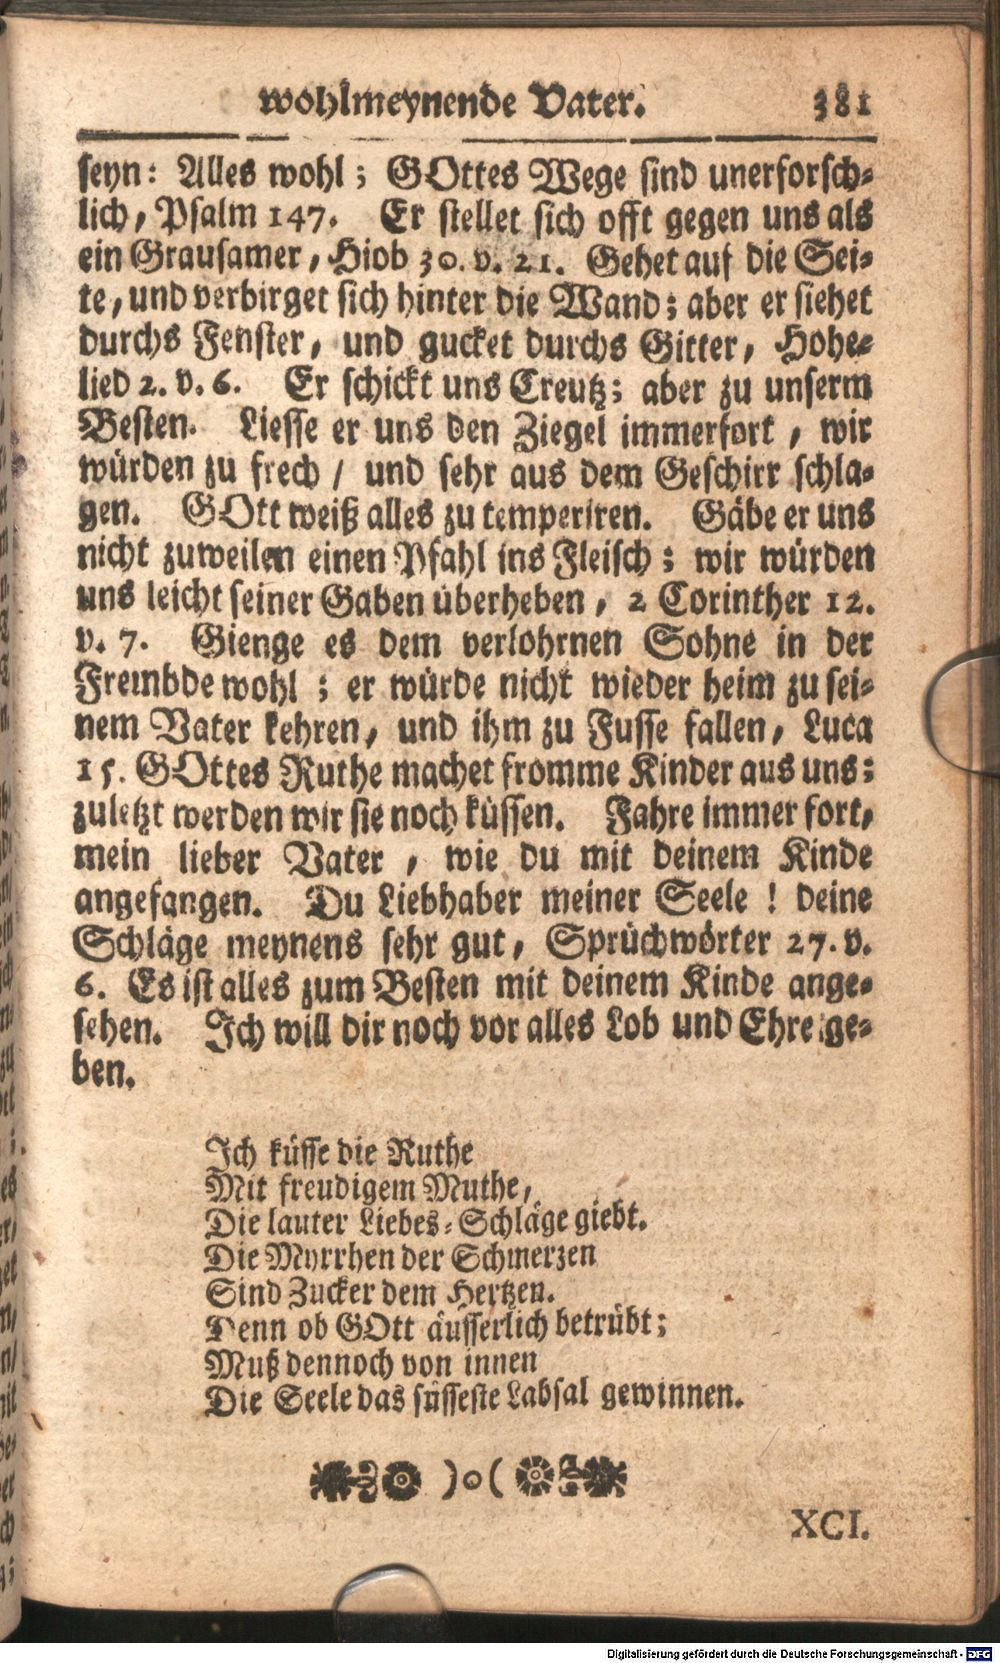 wohlmeynende Vater. 381
seyn: Alles wohl; GOttes Wege sind unerforsch-
lich, Psalm 147. Er stellet sich offt gegen uns als
ein Grausamer, Hiob 30. v. 21. Gehet auf die Sei-
te, und verbirget sich hinter die Wand; aber er siehet
durchs Fenster, und gucket durchs Gitter, Hohe-
lied 2. v. 6. Er schickt uns Creutz; aber zu unserm
Besten. Liesse er uns den Ziegel immerfort, wir
würden zu frech / und sehr aus dem Geschirr schla-
gen. GOtt weiß alles zu temperiren. Gäbe er uns
nicht zuweilen einen Pfahl ins Fleisch; wir würden
uns leicht seiner Gaben überheben, 2 Corinther 12.
v. 7. Gienge es dem verlohrnen Sohne in der
Frembde wohl; er würde nicht wieder heim zu sei-
nem Vater kehren, und ihm zu Fusse fallen, Luca
15. GOttes Ruthe machet fromme Kinder aus uns;
zuletzt werden wir sie noch küssen. Fahre immer fort,
mein lieber Vater, wie du mit deinem Kinde
angefangen. Du Liebhaber meiner Seele! deine
Schläge meynens sehr gut, Sprüchwörter 27. v.
6. Es ist alles zum Besten mit deinem Kinde ange-
sehen. Ich will dir noch vor alles Lob und Ehre ge-
ben.
Ich küsse die Ruthe
Mit freudigem Muthe,
Die lauter Liebes-Schläge giebt.
Die Myrrhen der Schmerzen
Sind Zucker dem Hertzen.
Denn ob GOtt äusserlich betrübt;
Muß dennoch von innen
Die Seele das süsseste Labsal gewinnen.
)o(
XCI.
Digitalisierung gefördert durch die Deutsche Forschungsgemeinschaft - DFG